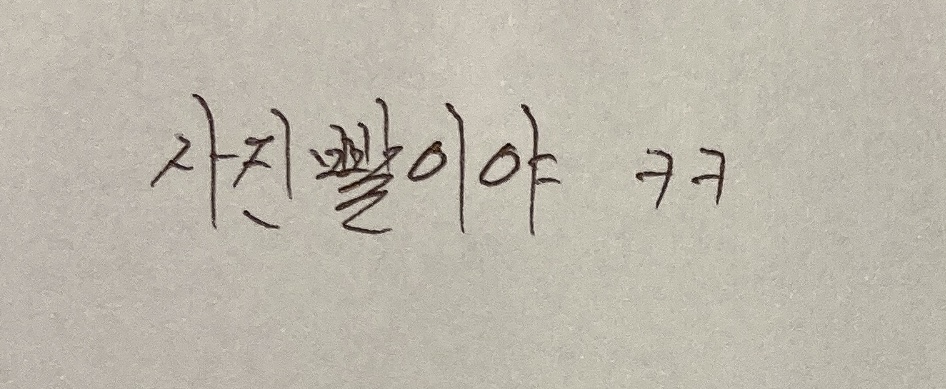 사진빨이야 ㅋㅋ